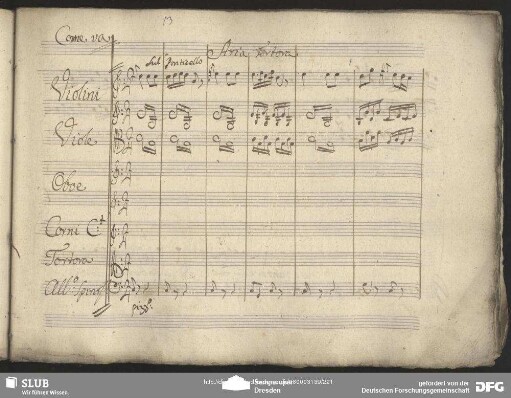 Come va
13
Aria Tortora
Sul Ponticello
Violini
Viole
Oboe
Corni C.
Tortora
All.º
pizz.
SLUB
Wir führen Wissen.
Dresden
gefördert von der
Deutschen Forschungsgemeinschaft
DFG